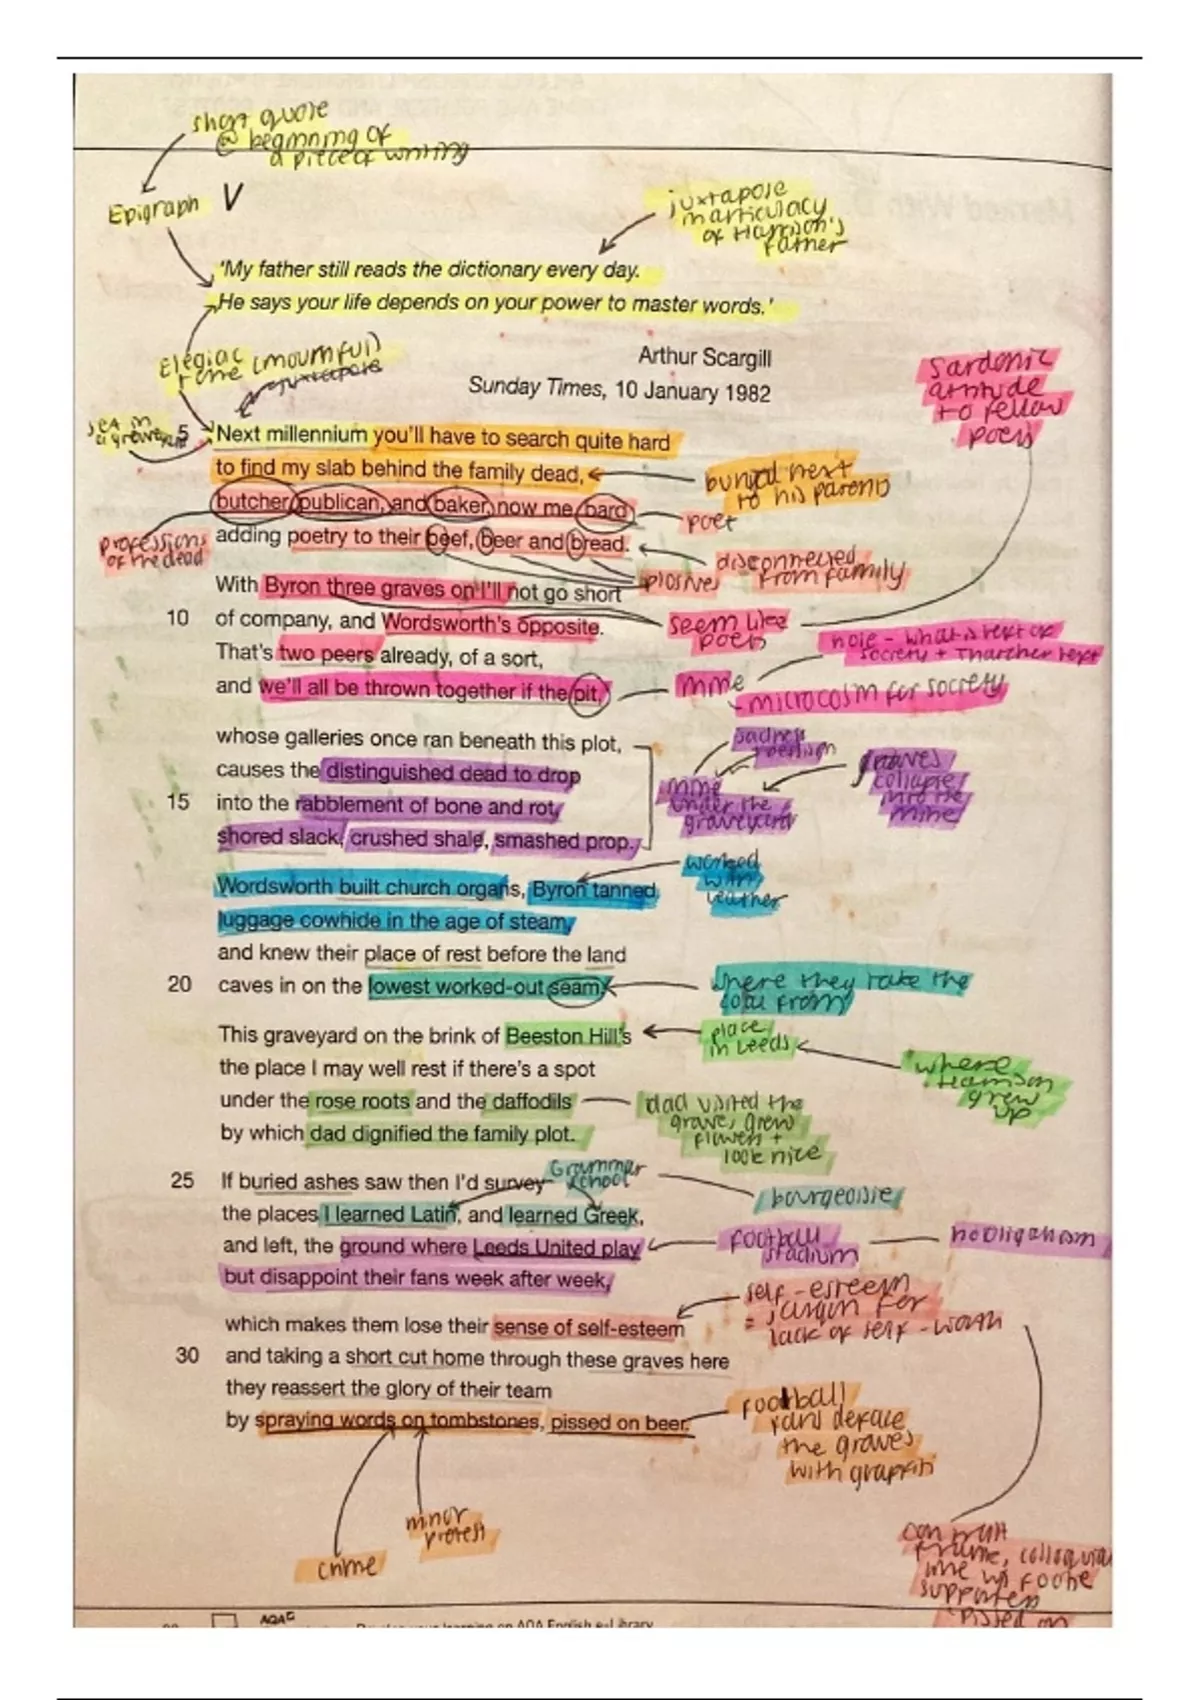 short quote
@ beginning of
a piece of writing
Epigraph
V
juxtapose
inarticulacy
of Harrison's
father
'My father still reads the dictionary every day.
He says your life depends on your power to master words.'
Arthur Scargill
Sunday Times, 10 January 1982
Elegiac (mournful)
tone
juxtapose
set in
a graveyard
Sardonic
attitude
to fellow
poets
5 Next millennium you'll have to search quite hard
to find my slab behind the family dead,
buried next
to his parents
butcher, publican, and baker, now me, bard
poet
adding poetry to their beef, beer and bread.
professions
of the dead
disconnected
from family
plosives
With Byron three graves on I'll not go short
10 of company, and Wordsworth's opposite.
seem like
poets
That's two peers already, of a sort,
hole - what is left of
society + Thatcher left
and we'll all be thrown together if the pit,
mine
- microcosm for society
whose galleries once ran beneath this plot,
causes the distinguished dead to drop
15 into the rabblement of bone and rot,
shored slack, crushed shale, smashed prop.
sadness
mine
under the
graveyard
graves
collapse
into the
mine
Wordsworth built church organs, Byron tanned
luggage cowhide in the age of steam,
worked
with
leather
and knew their place of rest before the land
20 caves in on the lowest worked-out seam.
where they take the
coal from
This graveyard on the brink of Beeston Hill's
place
in Leeds
where
Harrison
grew
up
the place I may well rest if there's a spot
under the rose roots and the daffodils
by which dad dignified the family plot.
dad visited the
graves, grew
flowers +
look nice
25 If buried ashes saw then I'd survey
Grammar
school
bourgeoisie
the places I learned Latin, and learned Greek,
and left, the ground where Leeds United play
football
stadium
hooliganism
but disappoint their fans week after week,
which makes them lose their sense of self-esteem
self-esteem
= jargon for
lack of self-worth
30 and taking a short cut home through these graves here
they reassert the glory of their team
by spraying words on tombstones, pissed on beer.
football
fans deface
the graves
with graffiti
crime
minor
protest
contrast
supporters
'pissed on
AQA
Develop your learning on AQA English e-Library